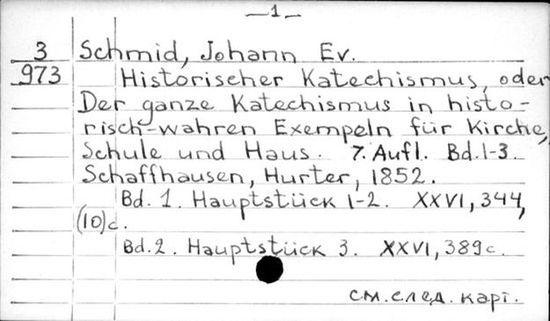 —1—
3 Schmid, Johann Ev.
973 Historischer Katechismus, oder
Der ganze Katechismus in histo-
risch-wahren Exempeln für Kirche,
Schule und Haus. 7. Aufl. Bd.1-3.
Schaffhausen, Hurter, 1852.
Bd. 1. Hauptstück 1-2. XXVI, 344,
(10)c.
Bd.2. Hauptstück 3. XXVI, 389c.
см. след. карт.